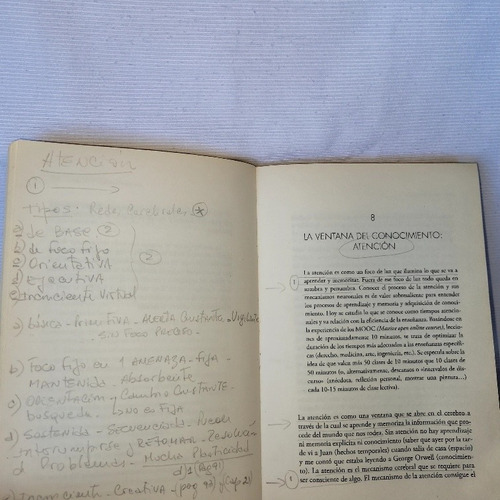 ATENCIÓN
1
TIPOS: Redes Cerebrales *
a) de BASE 2
b) de FOCO FIJO
c) ORIENTATIVA 2
d) EJECUTIVA
e) Inconsciente virtual
a) BÁSICA - PRIMITIVA - ALERTA CONSTANTE -
SIN FOCO
b) FOCO FIJO en 1 AMENAZA - FIJA -
MANTENIDA - Absorbente
c) ORIENTACIÓN y CAMBIO CONSTANTE -
busqueda - LO NO FIJA
d) SOSTENIDA - SECUENCIADA - Puede
interrumpirse y RETOMAR -
d Problemas - Mucha Plasticidad
8
LA VENTANA DEL CONOCIMIENTO:
ATENCIÓN
1
La atención es como un foco de luz que ilumina lo que se va a
aprender y memorizar. Fuera de ese foco de luz todo queda en
sombra y penumbra. Conocer el proceso de la atención y sus
mecanismos neuronales es de valor sobresaliente para entender
los procesos de aprendizaje y memoria y adquisición de conoci-
miento. Hoy se estudia lo que se conoce como tiempos atencio-
nales y su relación con la eficiencia de la enseñanza. Basándose en
la experiencia de los MOOC (Massive open online courses), leccio-
nes de aproximadamente 10 minutos, se trata de optimizar
la duración de los tiempos más adecuados a las enseñanzas especí-
ficas (derecho, medicina, arte, ingeniería, etc.). Se especula sobre la
idea de que valen más 50 clases de 10 minutos que 10 clases de
50 minutos (o, alternativamente, descansos o «inscisos de discu-
rso» (anécdota, reflexión personal, mostrar una pintura...)
cada 10-15 minutos de clase lectiva).
La atención es como una ventana que se abre en el cerebro a
través de la cual se aprende y memoriza la información que pro-
cede del mundo que nos rodea. Sin atención no hay aprendizaje
ni memoria explícita ni conocimiento (saber que ayer por la tar-
de vi a Juan (hechos temporales) cuando salía de casa (espacio)
y me contó que estaba leyendo a George Orwell (conocimien-
to). La atención es el mecanismo cerebral que se requiere para
1
ser consciente de algo. El mecanismo de la atención consigue el